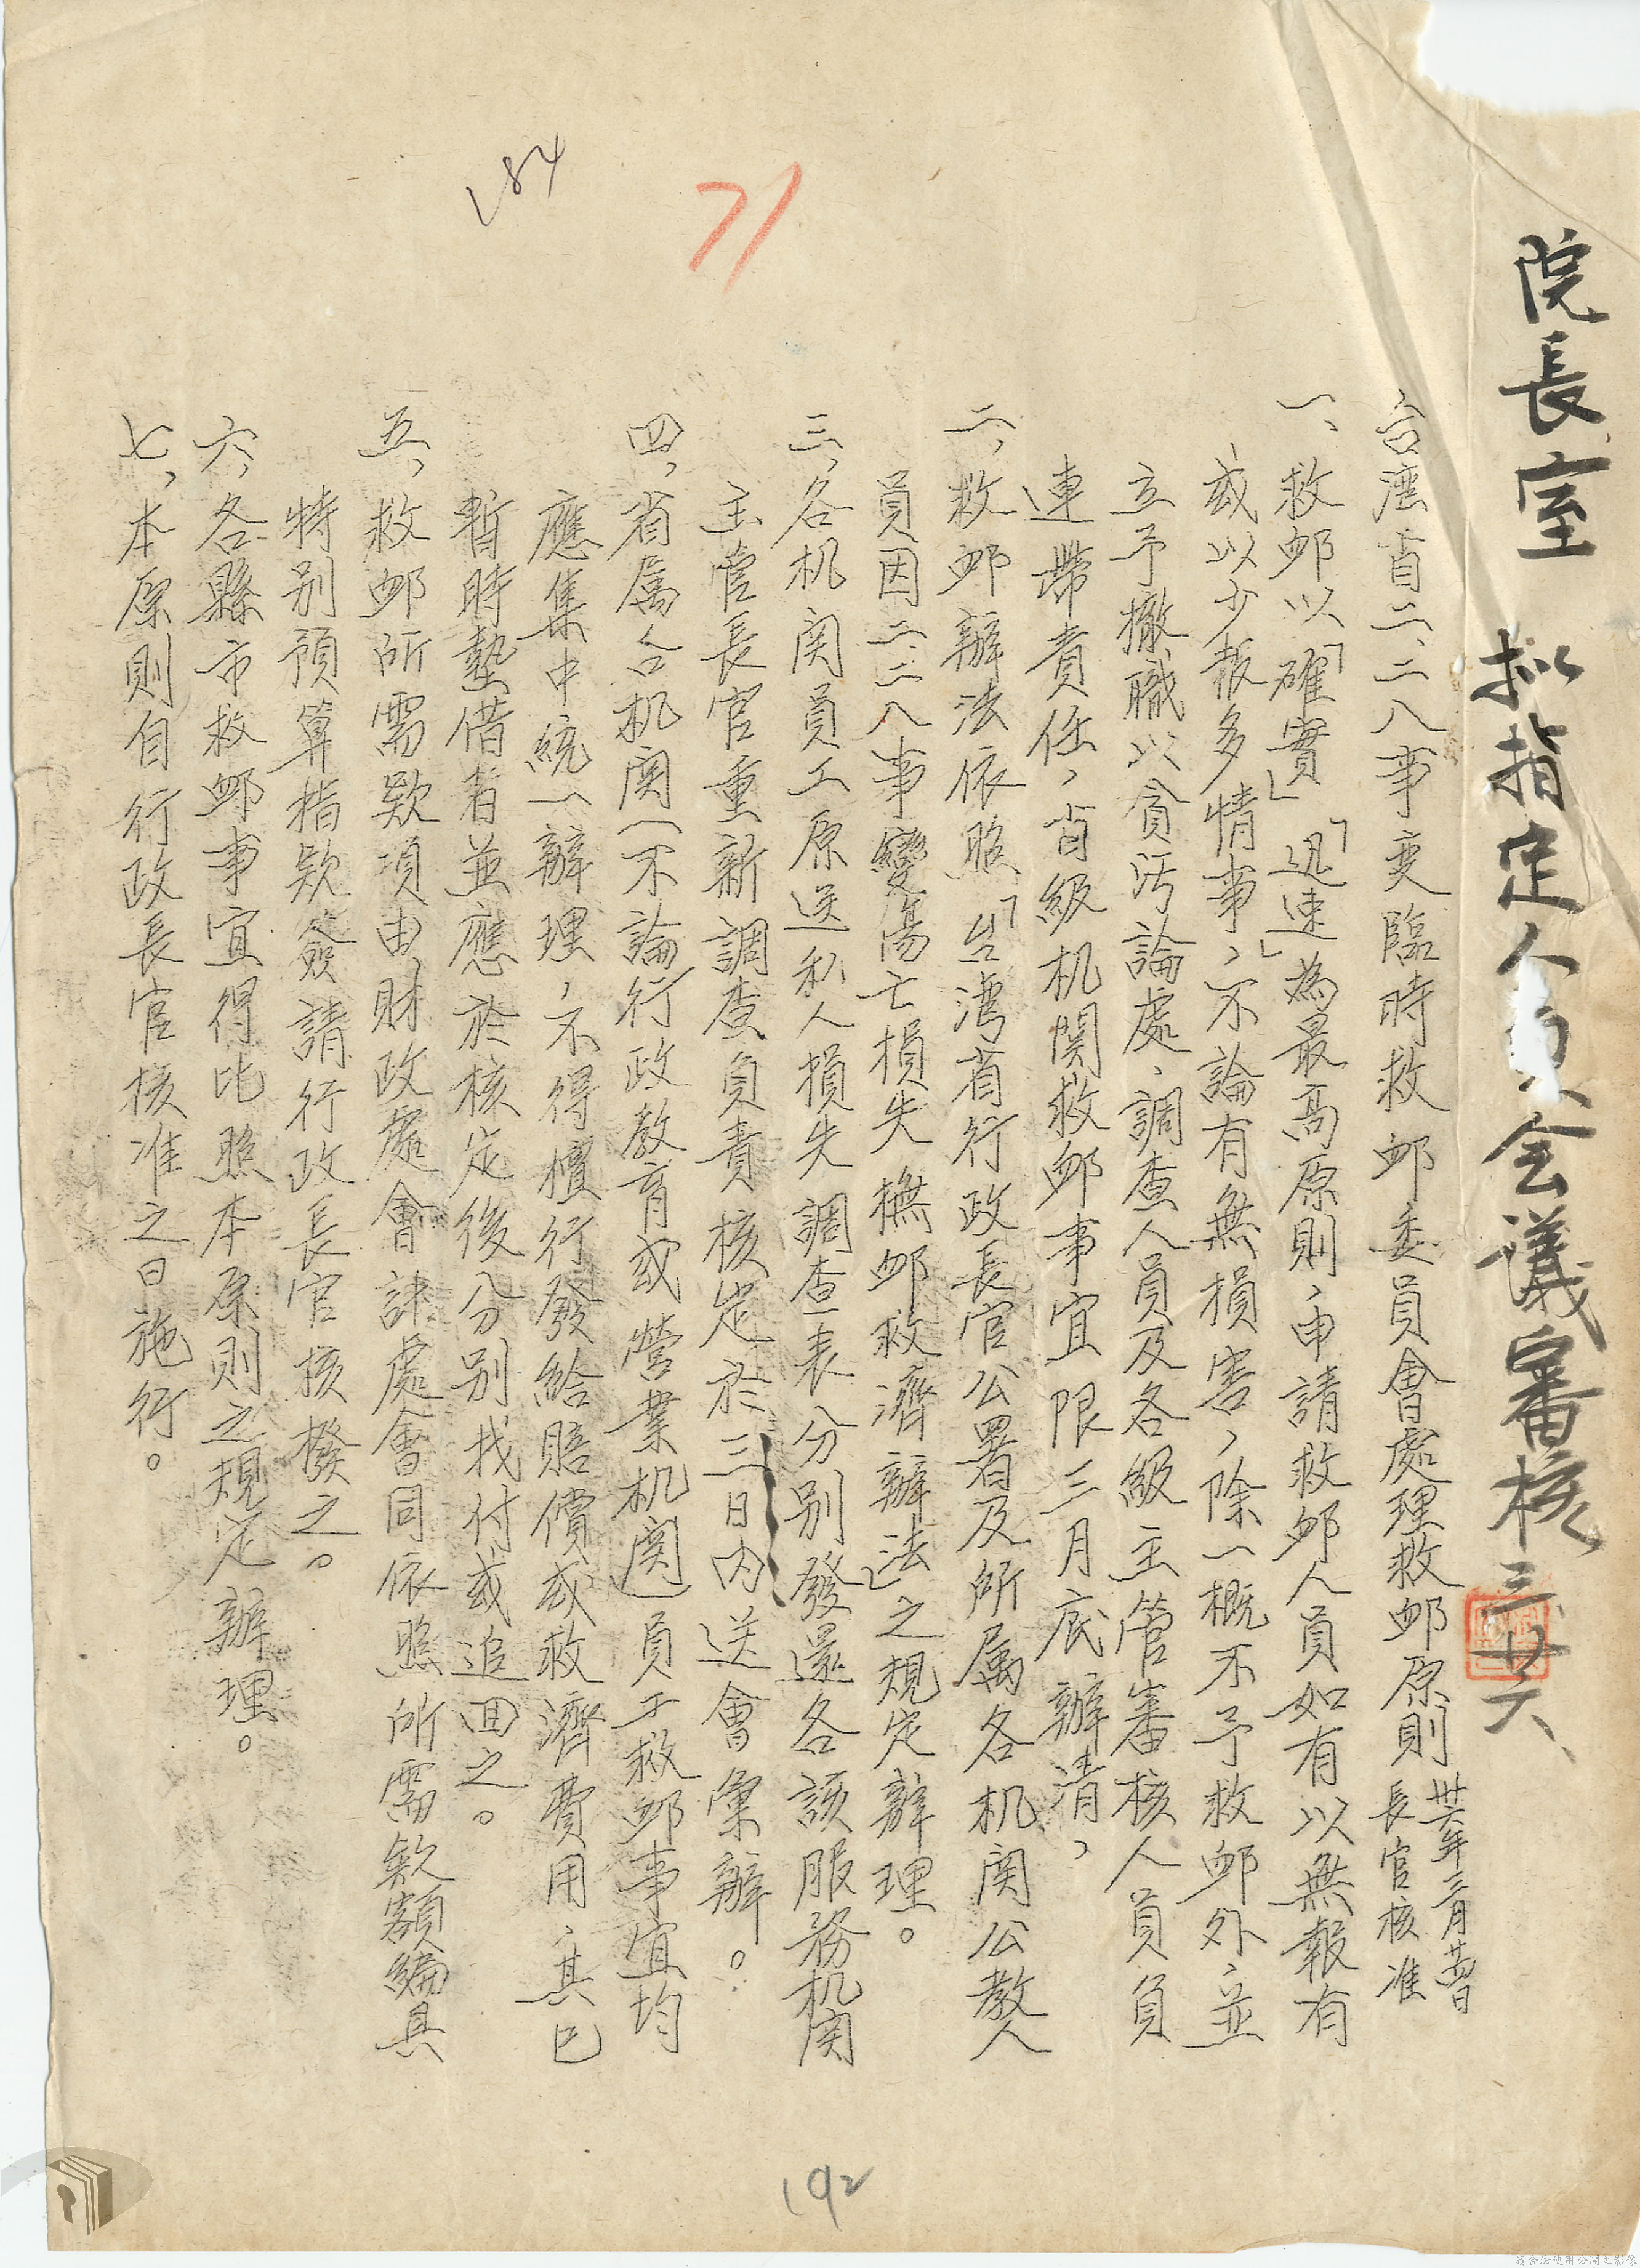 院長室 拟指定人員会議審核 三廿六、
台湾省二、二八事变臨時救䘏委員會處理救䘏原則 卅六年三月廿四日
長官核准
一、救䘏以「確實」「迅速」為最高原則，申請救䘏人員如有以無報有
或以少報多情事，不論有無損害，除一概不予救䘏外，並
立予撤職以貪污論處、調查人員及各級主管審核人員負
連帶責任，省級机関救䘏事宜限三月底辦清，
二、救䘏辦法依照「台湾省行政長官公署及所属各机関公教人
員因二、二八事變傷亡損失撫䘏救濟辦法」之規定辦理。
三、各机関員工原送私人損失調查表分別發還各該服務机関
主管長官重新調查負責核定於三日內送會彙辦。
四、省属各机関（不論行政教育或營業机関）員工救䘏事宜均
應集中統一辦理，不得擅行發給賠償或救濟費用，其已
暫時墊借者並應於核定後分別找付或追回之。
五、救䘏所需欵項由財政處會計處會同依照所需欵額編具
特別預算指欵簽請行政長官核撥之。
六、各縣市救䘏事宜得比照本原則之規定辦理。
七、本原則自行政長官核准之日施行。
184
71
192
請合法使用公開之影像